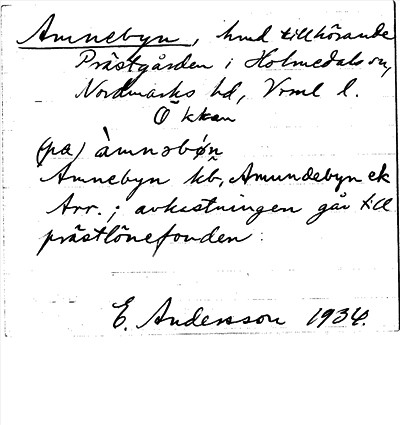 Amnebyn, hmd tillhörande
Prästgården i Holmedals sn,
Nordmarks hd, Vrml l.
Ö kkan
(på) àmnəbø̄n
Amnebyn kb, Amundebyn ek
Arr.; avkastningen går till
prästlönefonden.
E. Andersson 1934.